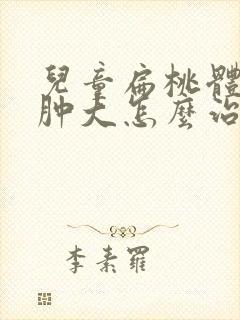 兒童扁桃體
肿大怎麼治
李素羅